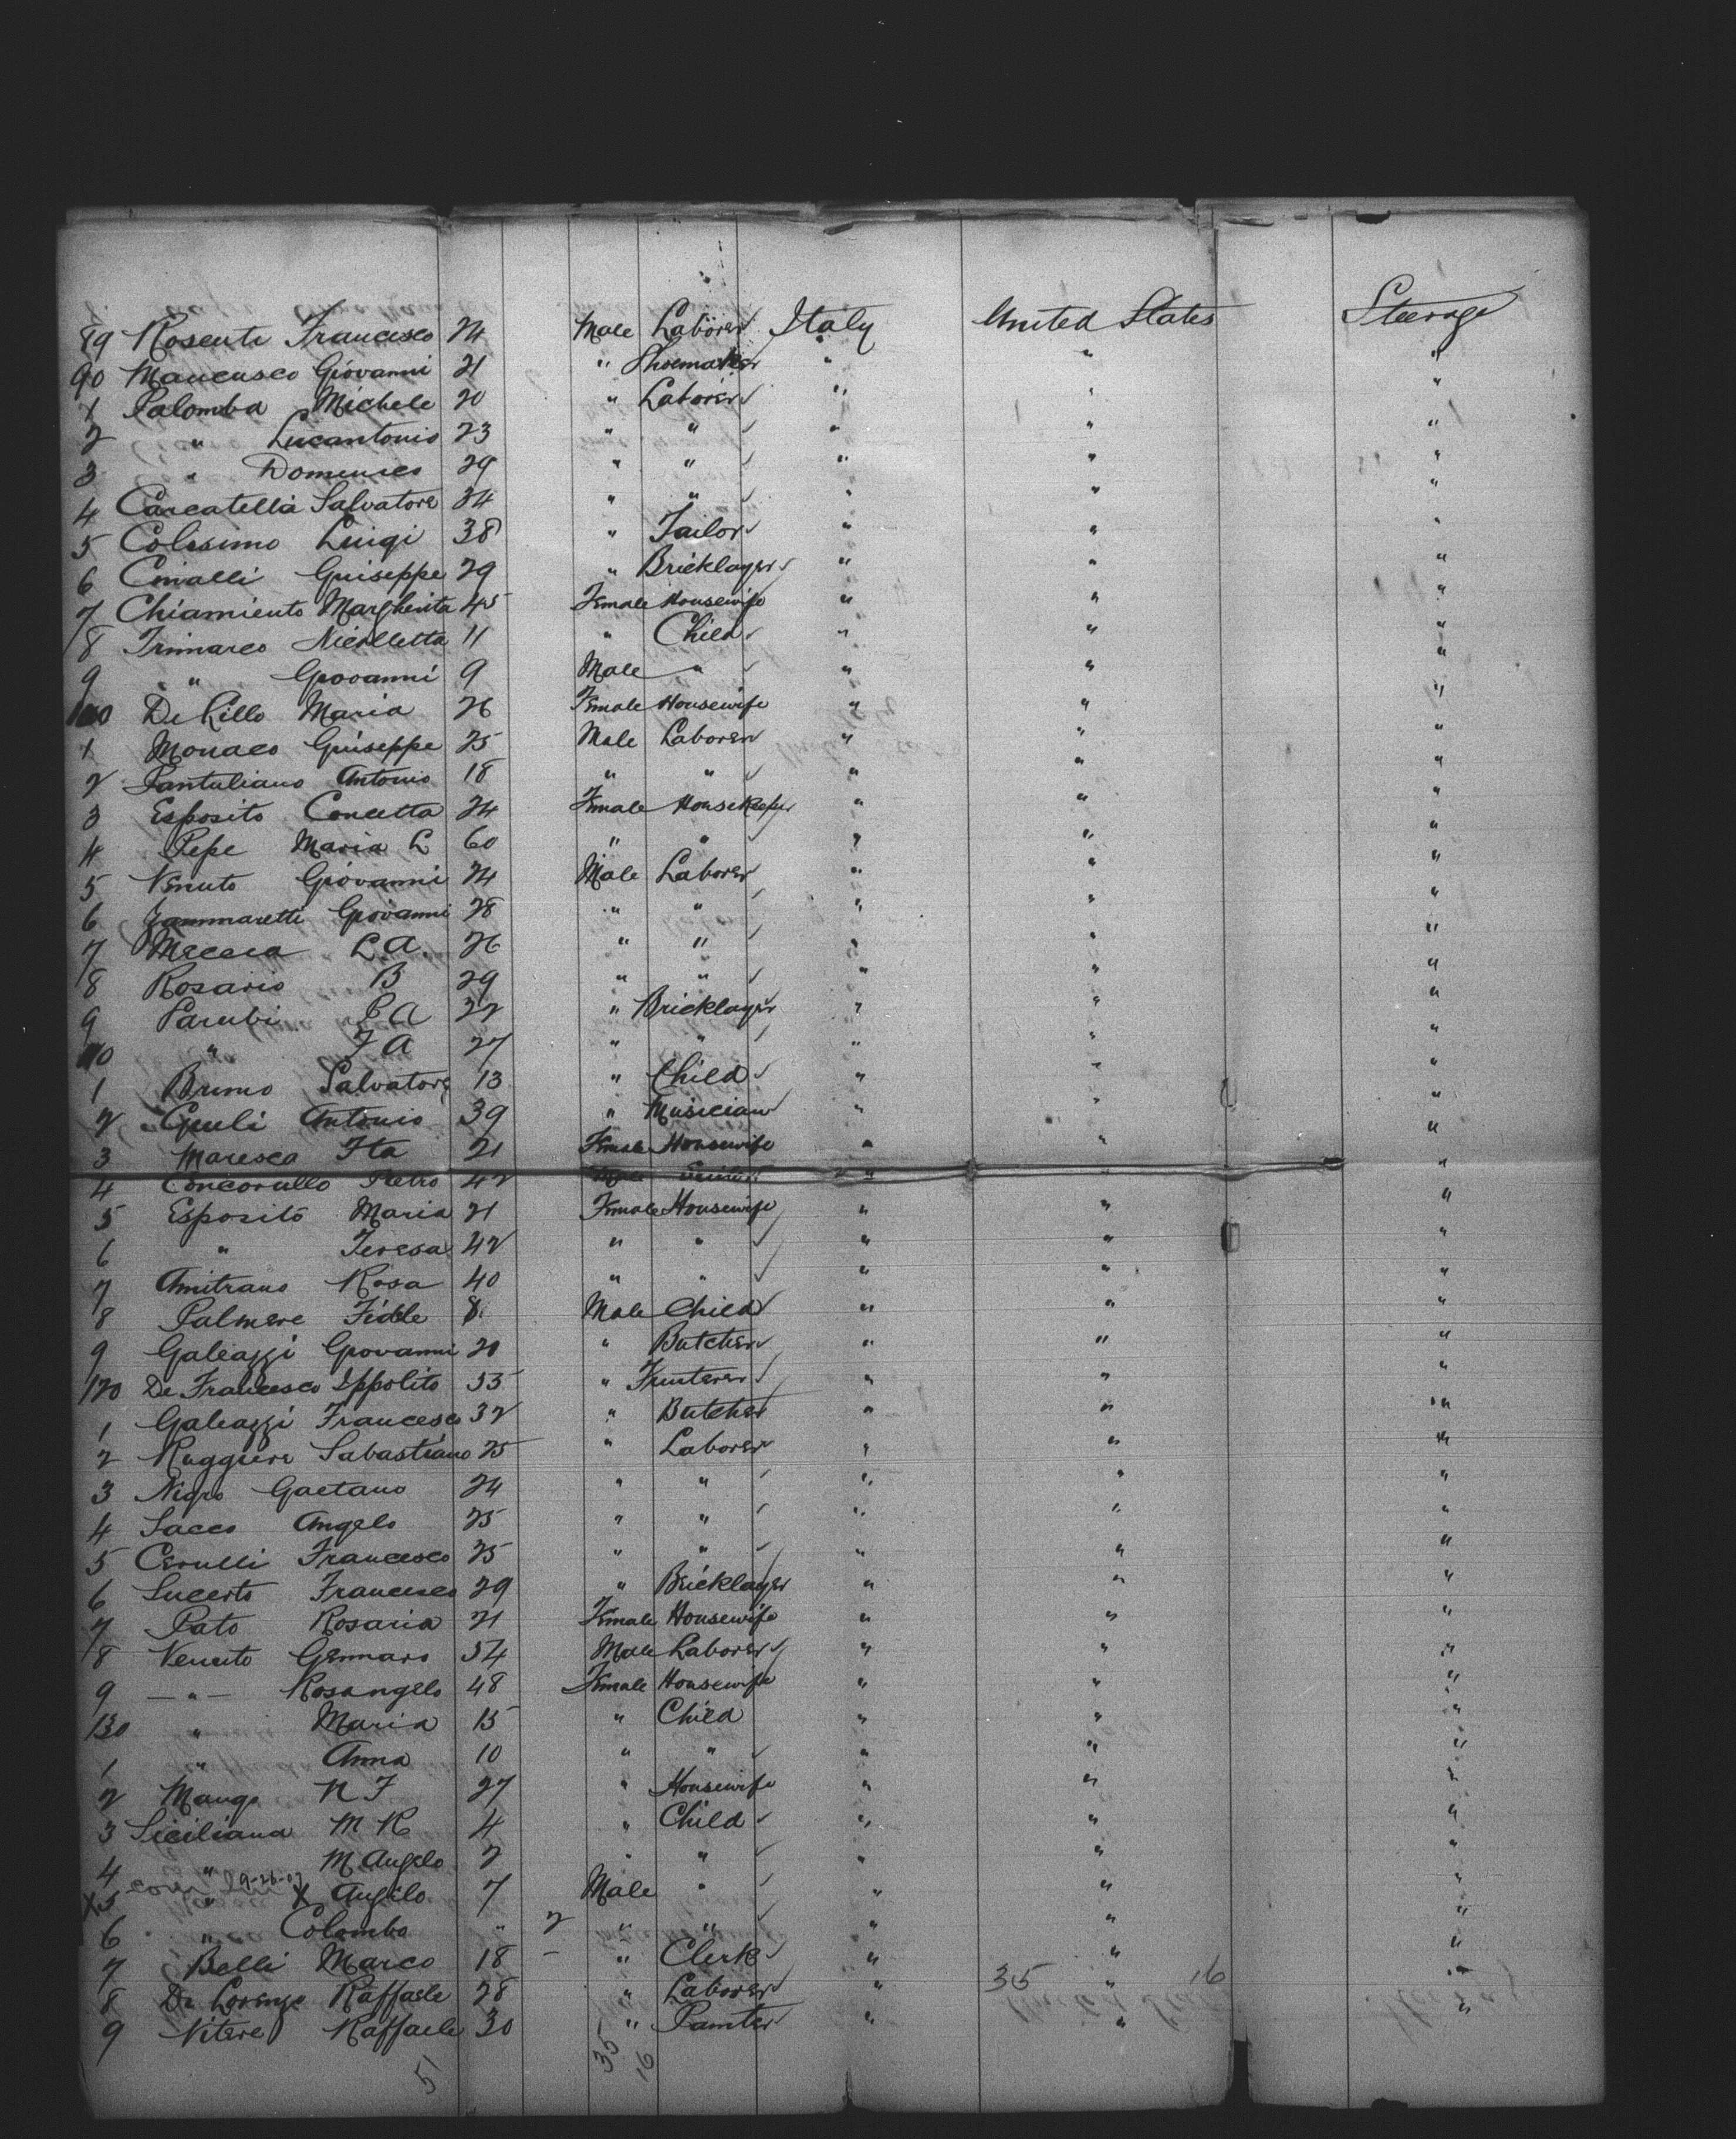 89 Rosenti Francesco 24 Male Laborer Italy United States Steerage
90 Mancusco Giovanni 21 " Shoemaker " " "
1 Palomba Michele 20 " Laborer " " "
2 " Lucantonio 23 " " " " "
3 " Domenico 29 " " " " "
4 Carcatella Salvatore 34 " " " " "
5 Colesimo Luigi 38 " Tailor " " "
6 Guiseppe 29 " Bricklayer " " "
7 Chiamiento Margherita 45 Female Housewife " " "
8 Trimarco Nicolletta 11 " Child " " "
9 " Giovanni 9 Male " " " "
100 De Lillo Maria 26 Female Housewife " " "
1 Monaco Guiseppe 25 Male Laborer " " "
2 Pantuliano Antonio 18 " " " " "
3 Esposito Concetta 24 Female Housekeeper " " "
4 Pepe Maria L 60 " " " " "
5 Venuto Giovanni 24 Male Laborer " " "
6 Zammaretti Giovanni 28 " " " " "
7 Mecca L A. 26 " " " " "
8 Rosario B 29 " " " " "
9 Parubi P A 32 " Bricklayer " " "
10 " F A 27 " " " " "
1 Bruno Salvatore 13 " Child " " "
2 Giuli Antonio 39 " Musician " " "
3 Maresca Ita 21 Female Housewife " " "
4 Concorullo Pietro 42 Male " " "
5 Esposito Maria 21 Female Housewife " " "
6 " Teresa 42 " " " " "
7 Amitrano Rosa 40 " " " " "
8 Palmere Fidele 8 Male Child " " "
9 Galeazzi Giovanni 20 " Butcher " " "
120 De Francesco Ippolito 55 " " " "
1 Galeazzi Francesco 32 " Butcher " " "
2 Ruggieri Sabastiano 25 " Laborer " " "
3 Nigro Gaetano 24 " " " " "
4 Sacco Angelo 25 " " " " "
5 Cerulli Francesco 25 " " " " "
6 Lucerto Francesco 29 " Bricklayer " " "
7 Pato Rosaria 21 Female Housewife " " "
8 Venuto Gennaro 54 Male Laborer " " "
9 — " — Rosangelo 48 Female Housewife " " "
130 " Maria 15 " Child " " "
1 " Anna 10 " " " " "
2 Mango N F 27 " Housewife " " "
3 Siciliana M R 4 " Child " " "
4 " M Angelo 2 " " " " "
9-26-07
X5 " X Angilo 7 Male " " " "
6 " Colombo " 2 " " " " "
7 Belli Marco 18 - " Clerk " " "
8 De Lorenzo Raffaele 28 " Laborer " 35 " 16 "
9 Nitere Raffaele 30 " Painter " " "
5 35 16